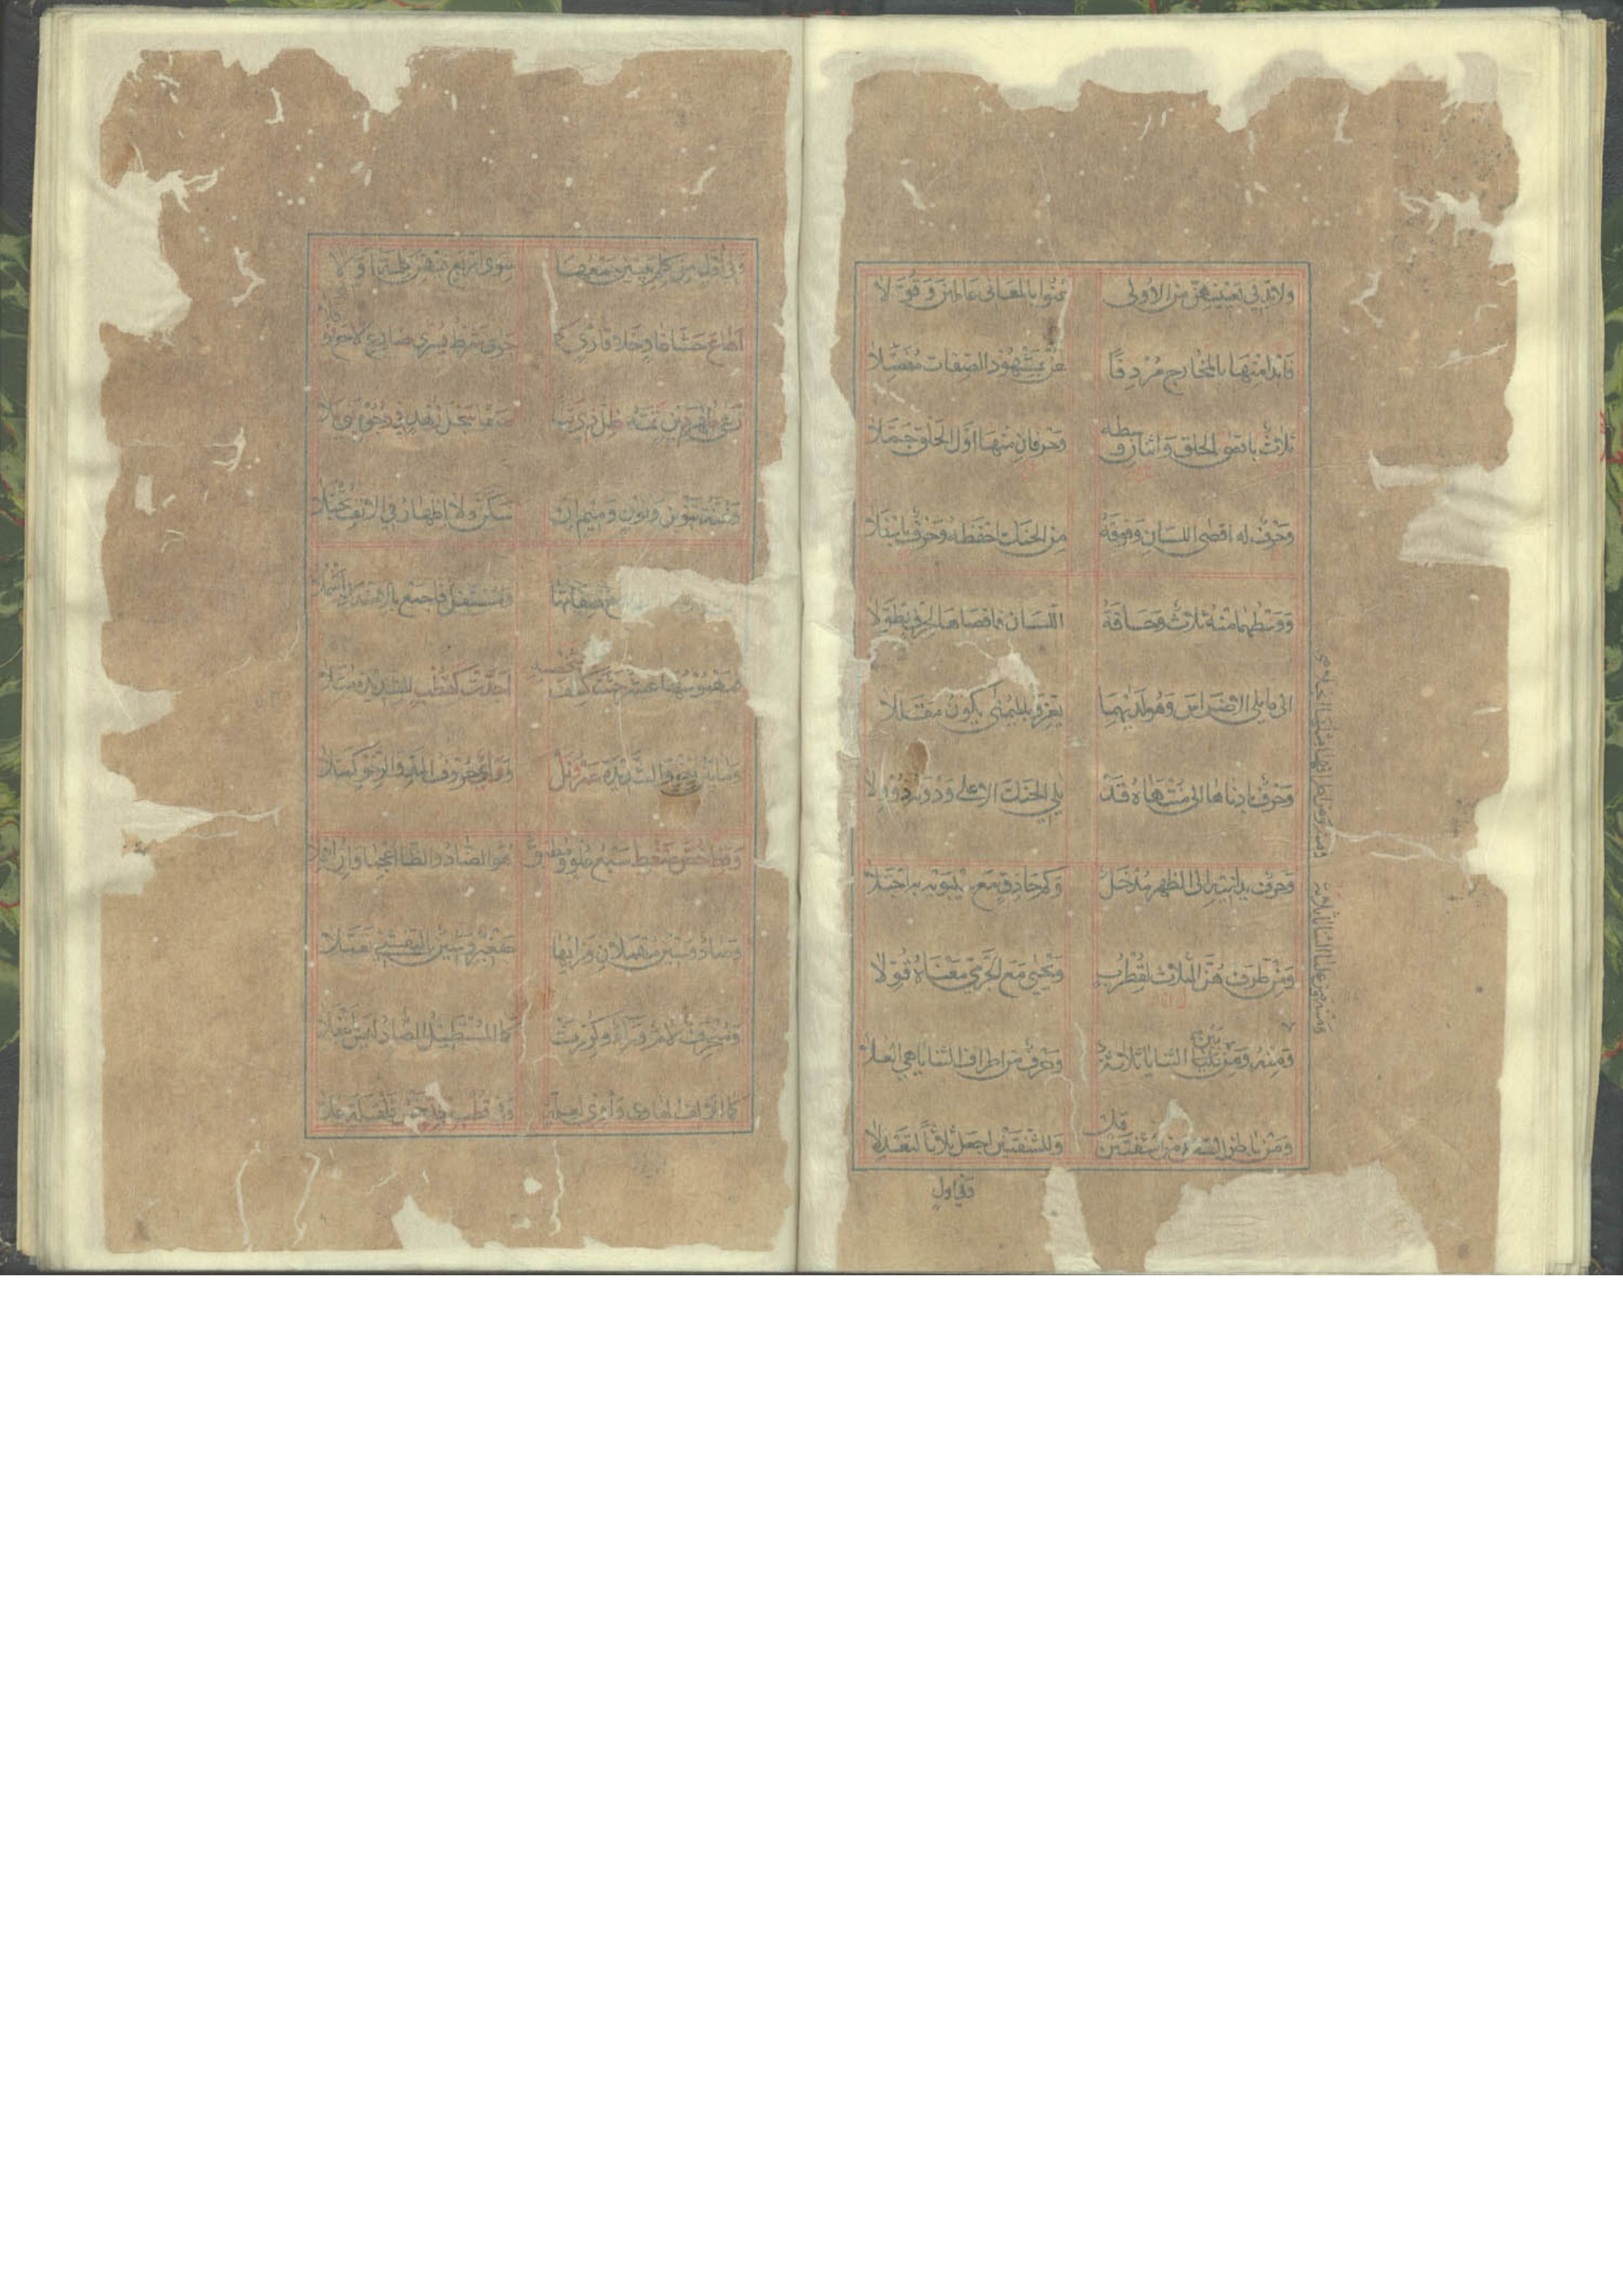 ولا بد في تعيينهن من الأولى عنوا بالمعاني عاملين وقولا
فابدأ منها بالمخارج مردفا لهن بمشهود الصفات مفصلا
ثلاث باقصى الحلق واثنان وسطه وحرفان منها اول الحلق جملا
وحرف له اقصى اللسان وفوقه من الحنك احفظه وحرف باسفلا
ووسطهما منه ثلاث وحافة اللسان فاقصاها لحرف تطولا
الى ما يلي الاضراس وهو لديهما يعز وباليمنى يكون مقللا
وحرف بادناها الى منتهاه قد يلي الحنك الاعلى ودونه ذو ولا
وحرف يدانيه الى الظهر مدخل وكم حاذق مع سيبويه به اجتلا
ومن طرف هن الثلاث لقطرب ويحيى مع الجرمي معناه قولا
ومنه ومن بين الثنايا ثلاثة وحرف من اطراف الثنايا هي العلا
ومن باطن السفلى من شفتين قل وللشفتين اجعل ثلاثا لتعدلا
وفي اول
وفي أول من كلم بيتين جمعها سوى اربع فيهن كلمة اولا
اهاع حشا غاو خلا قارئ كما جرى شرط يسرى ضارع لاح نوفلا
رعى طهر دين تمه ظل ذي ثنا صفا سجل زهد في وجوه بني ملا
وغنة تنوين ونون وميم ان سكن ولا اظهار في الانف يجتلا
صفاتها ومستفل فاجمع بالاضداد اشملا
فمهموسها عشر حثت كسف شخصه اجدت كقطب للشديدة مثلا
وما بين رخو والشديدة عمر نل وواي حروف المد والرخو كملا
وقظ خص ضغط سبع علو ومطبق هو الضاد والظا اعجما وان اهملا
وصاد وسين مهملان وزايها صفير وشين بالتفشي تعملا
ومنحرف لام وراء وكررت كما المستطيل الضاد ليس باغفلا
كما الالف الهاوي وآوي لعلة وفي قطب جد خمس قلقلة علا